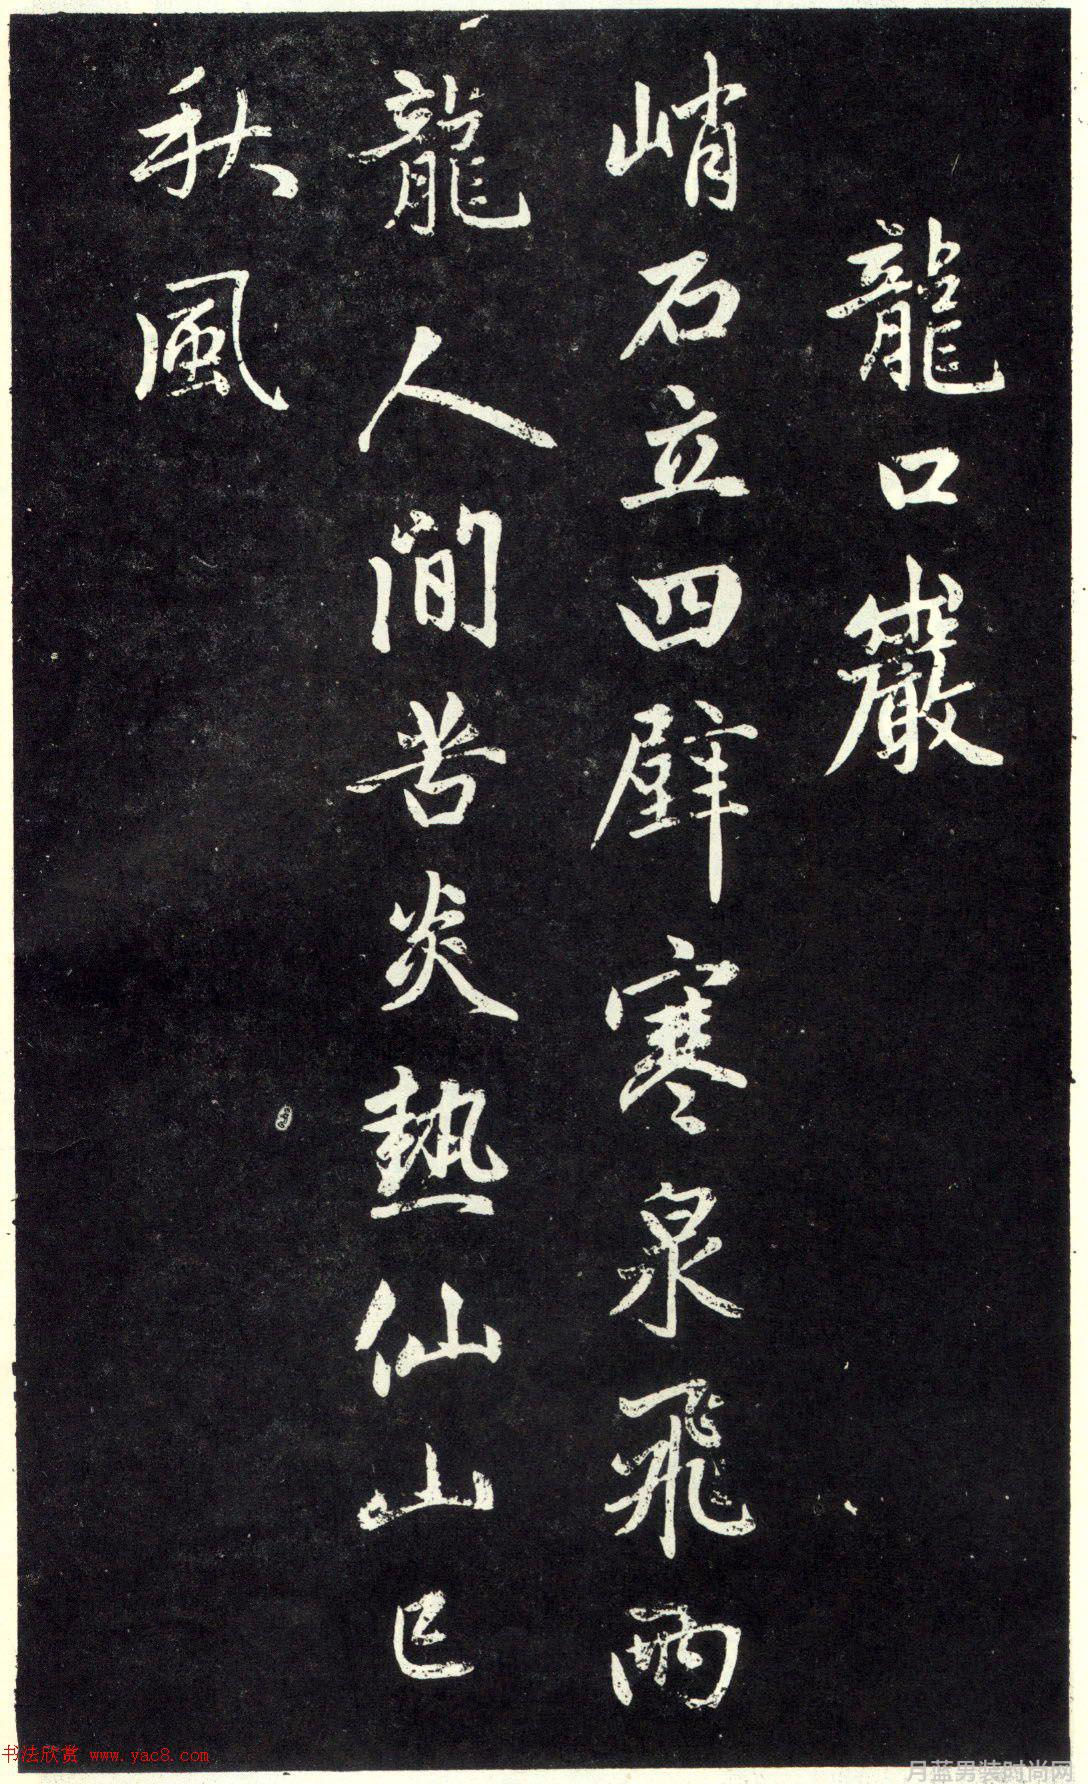 龍口巖
峭石立四壁寒泉飛兩
龍人間苦炎熱仙山已
秋風
书法欣赏 www.yac8.com
月蓝男装时尚网